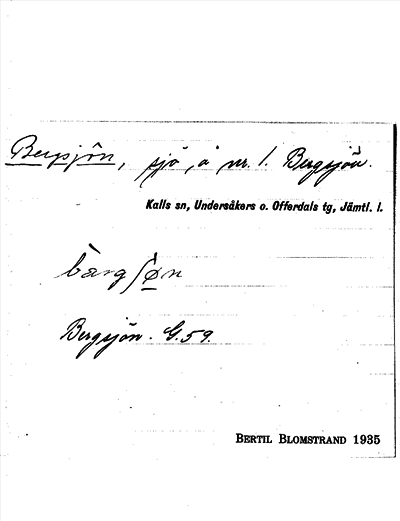 Bergsjön, sjö, å nr. 1. Bergsjön.
Kalls sn, Undersåkers o. Offerdals tg, Jämtl. l.
bàrgʃøn
Bergsjön. G.59.
BERTIL BLOMSTRAND 1935